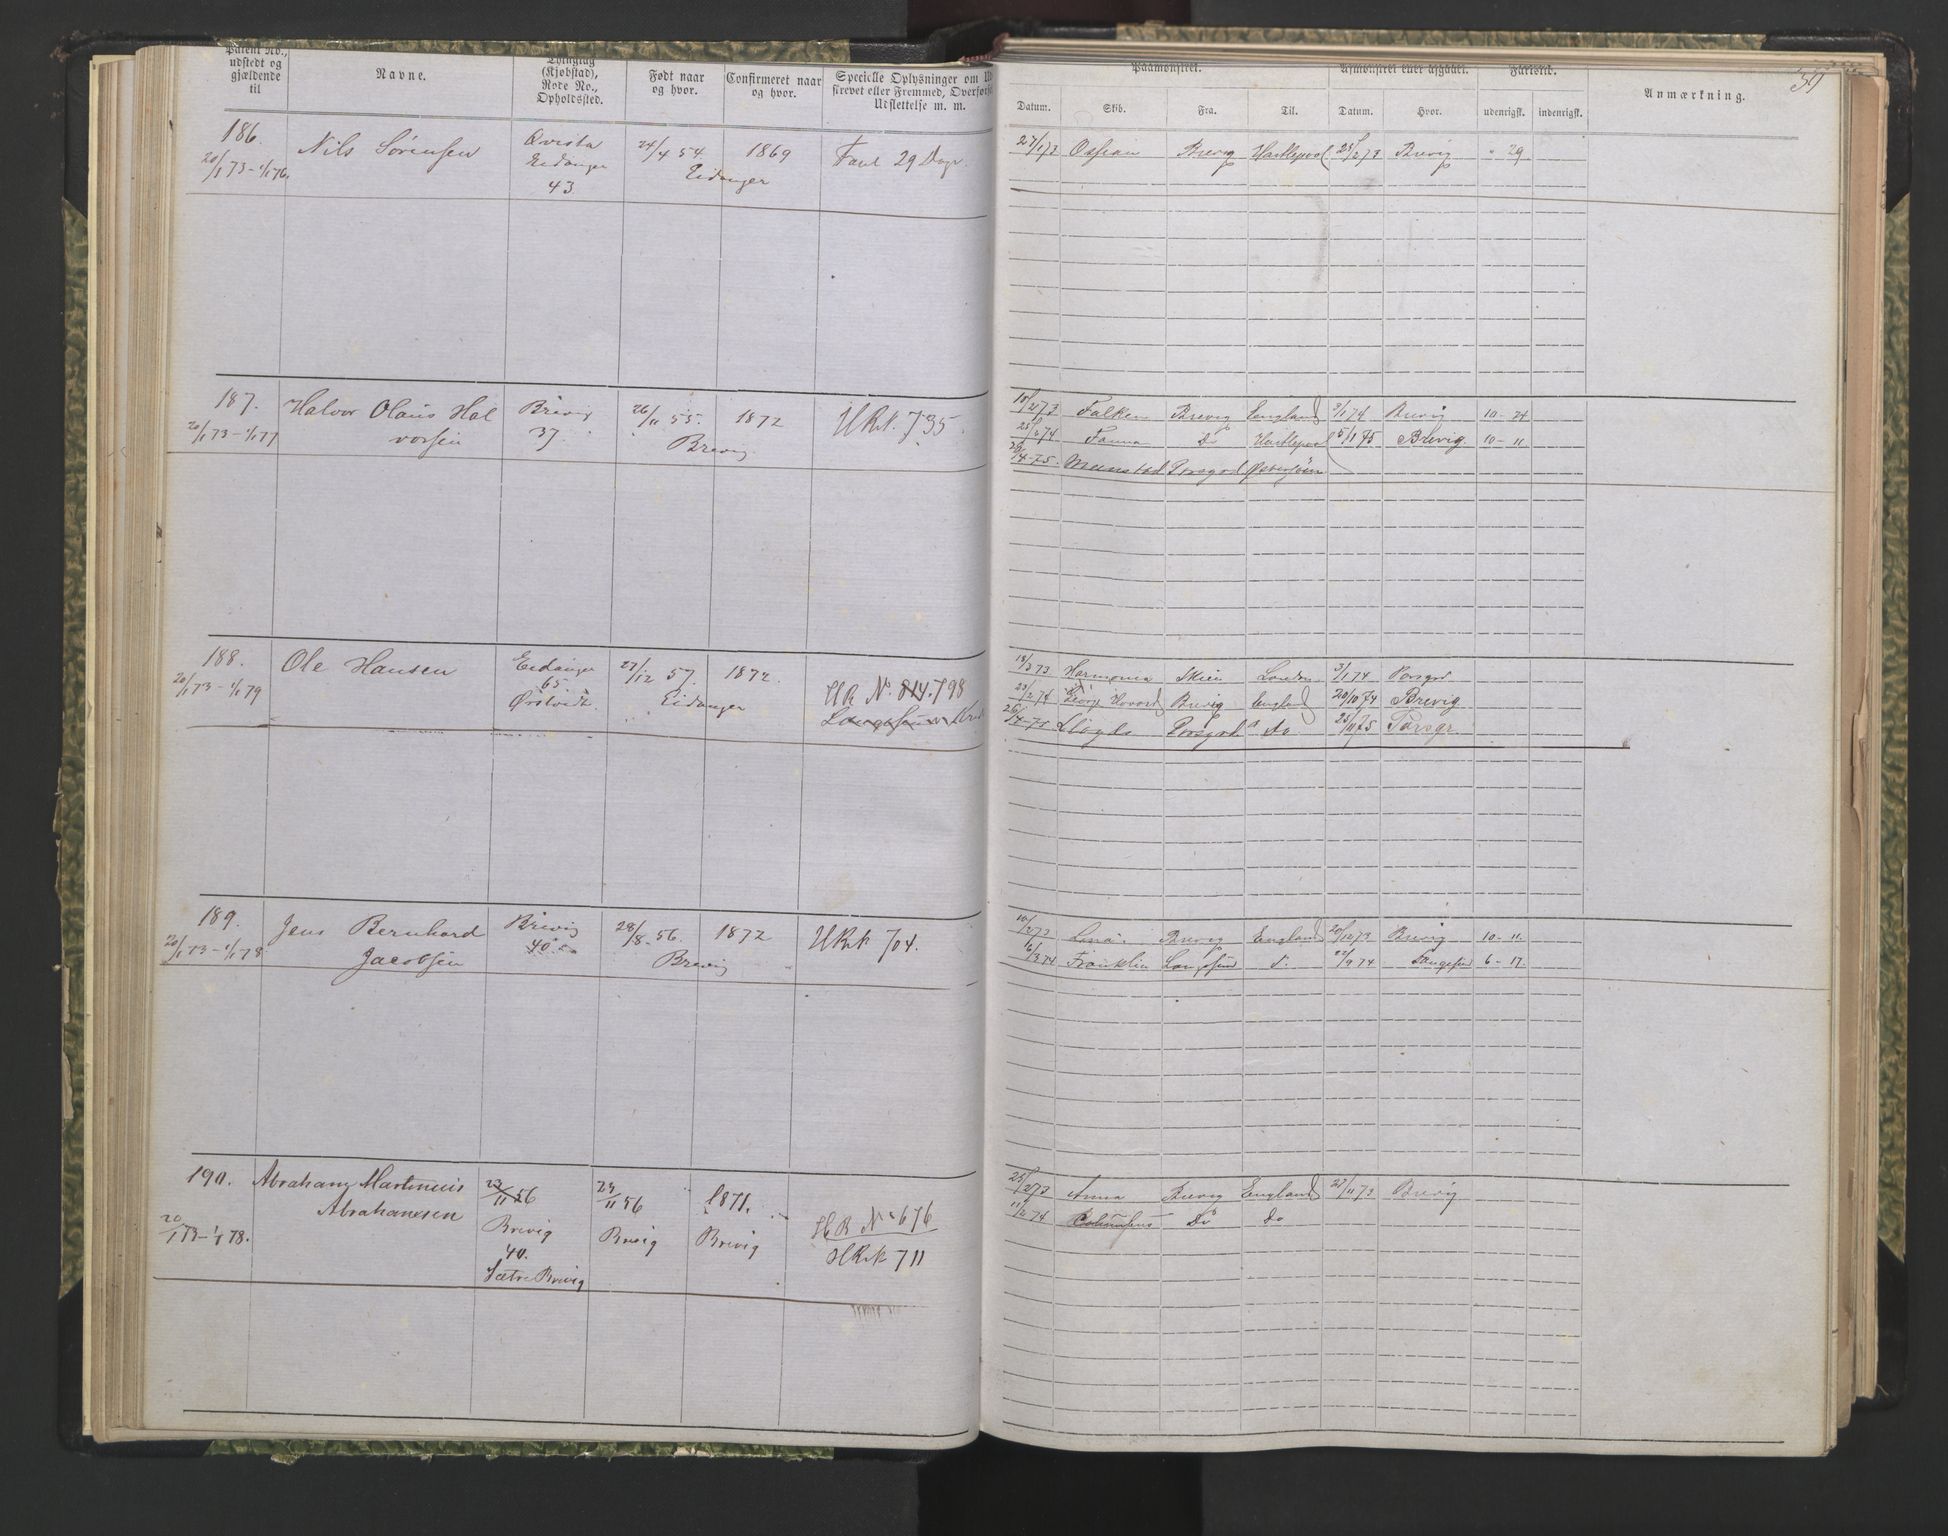 Patent No.,
udstedt og
gjældende
til
Navne.
Thinglag
(Kjøbstad),
Rode No.,
Opholdssted.
Født naar
og hvor.
Confirmeret naar
og hvor.
Specielle Oplysninger om Ud
skrevet eller Fremmed, Overførse
Udslettelse m. m.
Paamønstret.
Afmønstret eller afgaaet.
Fartstid.
Anmærkning.
Datum.
Skib.
Fra.
Til.
Datum.
Hvor.
udenrigsk.
indenrigsk.
186.
20/1 73 - 1/1 76.
Nils Sörensen
Eidanger
43
24/4 54
Eidanger
1869
Faret 29 Dage
27/1 73 Ossian Brevig Hartlepool 25/2 73 Brevig " 29
187.
20/1 73 - 1/1 77
Halvor Olaus Hal
vorsen
Brevig
37.
26/11 55.
Brevig
1872
HRk. 735.
18/2 73 Falken Brevig England 3/1 74 Brevig 10 - 24
25/2 74 Fanna Do Hartlepool 5/1 75 Brevig 10 - 11
26/4 - 75. Porsgrd Østersjøen
188.
20/1 73 - 1/1 79
Ole Hansen
Eidanger
65.
Örstvidt.
27/12 57.
Eidanger
1872.
HR No. 814. 798
18/3 73 Harmonia Skien London 3/1 74 Porsgrd
23/2 74 Georg Hovard Brevig England 20/10 74 Brevig
26/4 - 75 Lloyds Porsgrd Do 25/11 75 Porsgr.
189.
20/1 73 - 1/1 78
Jens Bernhard
Jacobsen
Brevig
40
28/8 - 56.
Brevig
1872
HRk 704.
10/2 73 Lina Brevig England 20/12 73 Brevig 10 - 11
16/3 74 Franklin Langesund d. 22/9 74 Langesund 6 - 17
190.
20/1 73 - 1/1 78.
Abraham Martinius
Abrahamsen
23/11 56
Brevig
40.
Sætre Brevig
23/11 56
Brevig
1871.
Brevig
HR No 676
HRk 711
25/2 73 Anna Brevig England 27/11 73 Brevig
11/2 74 Columbus Do do